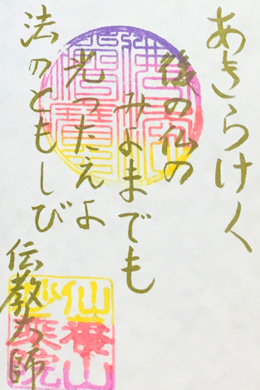 あきらけく
後の仏の
みよまでも
光つたえよ
法のともしび
伝教大師